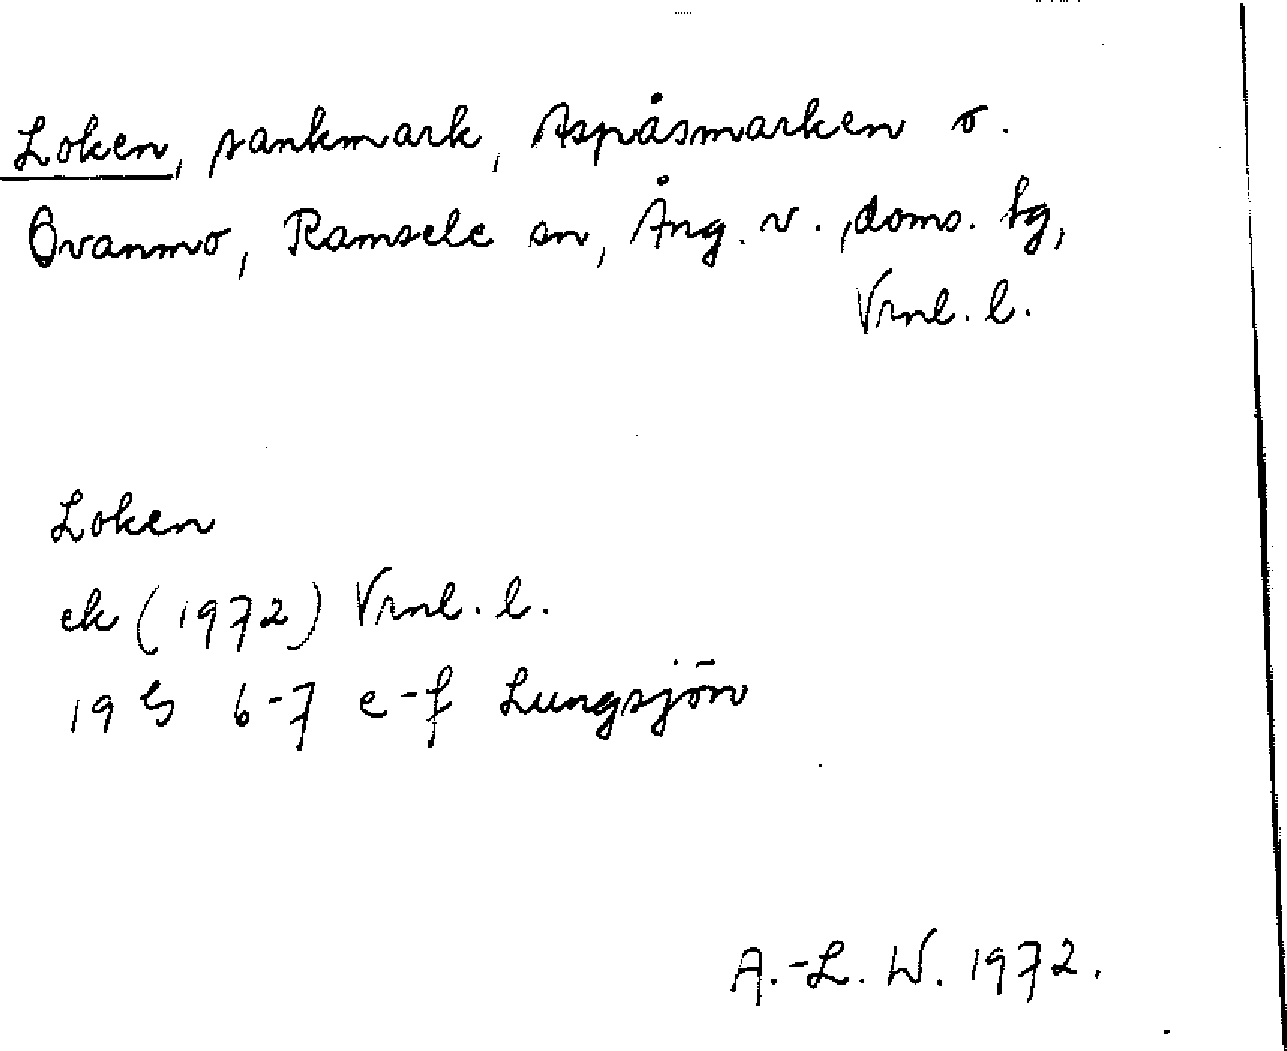 Loken, sankmark, Aspåsmarken o.
Ovanmo, Ramsele sn, Ång. v., doms. tg,
Vrnl. l.
Loken
ek (1972) Vrnl. l.
19 G 6-7 e-f Lungsjön
A.-L. W. 1972.